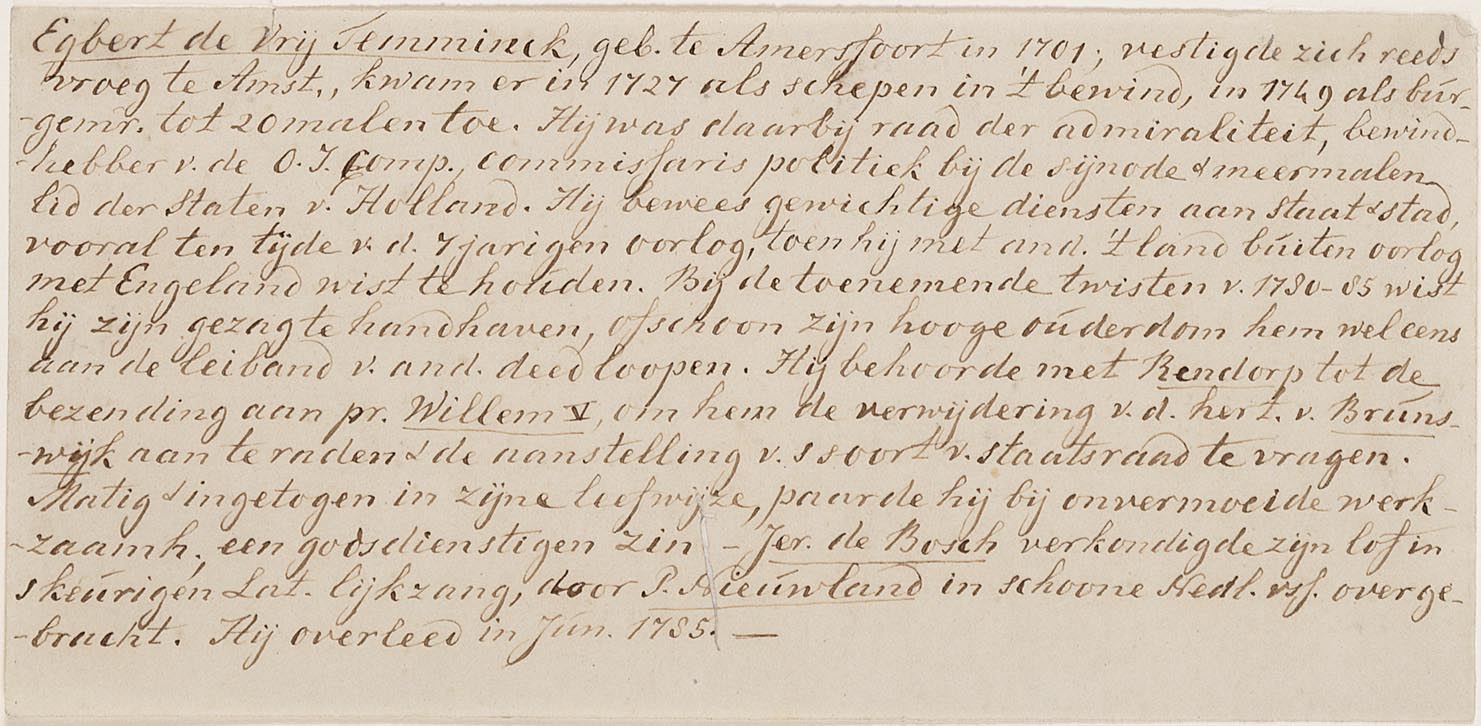 Egbert de Vrij Temminck, geb. te Amersfoort in 1701; vestigde zich reeds
vroeg te Amst., kwam er in 1727 als schepen in 't bewind, in 1749 als bur-
-gemr. tot 20 malen toe. Hij was daarbij raad der admiraliteit, bewind-
-hebber v. de O. I. Comp., commissaris politiek bij de sijnode & meermalen
lid der Staten v. Holland. Hij bewees gewichtige diensten aan staat & stad,
vooral ten tijde v. d. 7 jarigen oorlog, toen hij met and. 't land buiten oorlog
met Engeland wist te houden. Bij de toenemende twisten v. 1780-85 wist
hij zijn gezag te handhaven, ofschoon zijn hooge ouderdom hem wel eens
aan de leiband v. and. deed loopen. Hij behoorde met Rendorp tot de
bezending aan pr. Willem V, om hem de verwijdering v. d. hert. v. Bruns-
-wijk aan te raden & de aanstelling v. s soort v. staatsraad te vragen.
Matig & ingetogen in zijne leefwijze, paarde hij bij onvermoeide werk-
-zaamh. een godsdienstigen zin - Jer. de Bosch verkondigde zijn lof in
s keurigen Lat. lijkzang, door P. Nieuwland in schoone Nedl. vss. overge-
-bracht. Hij overleed in Jun. 1785. —